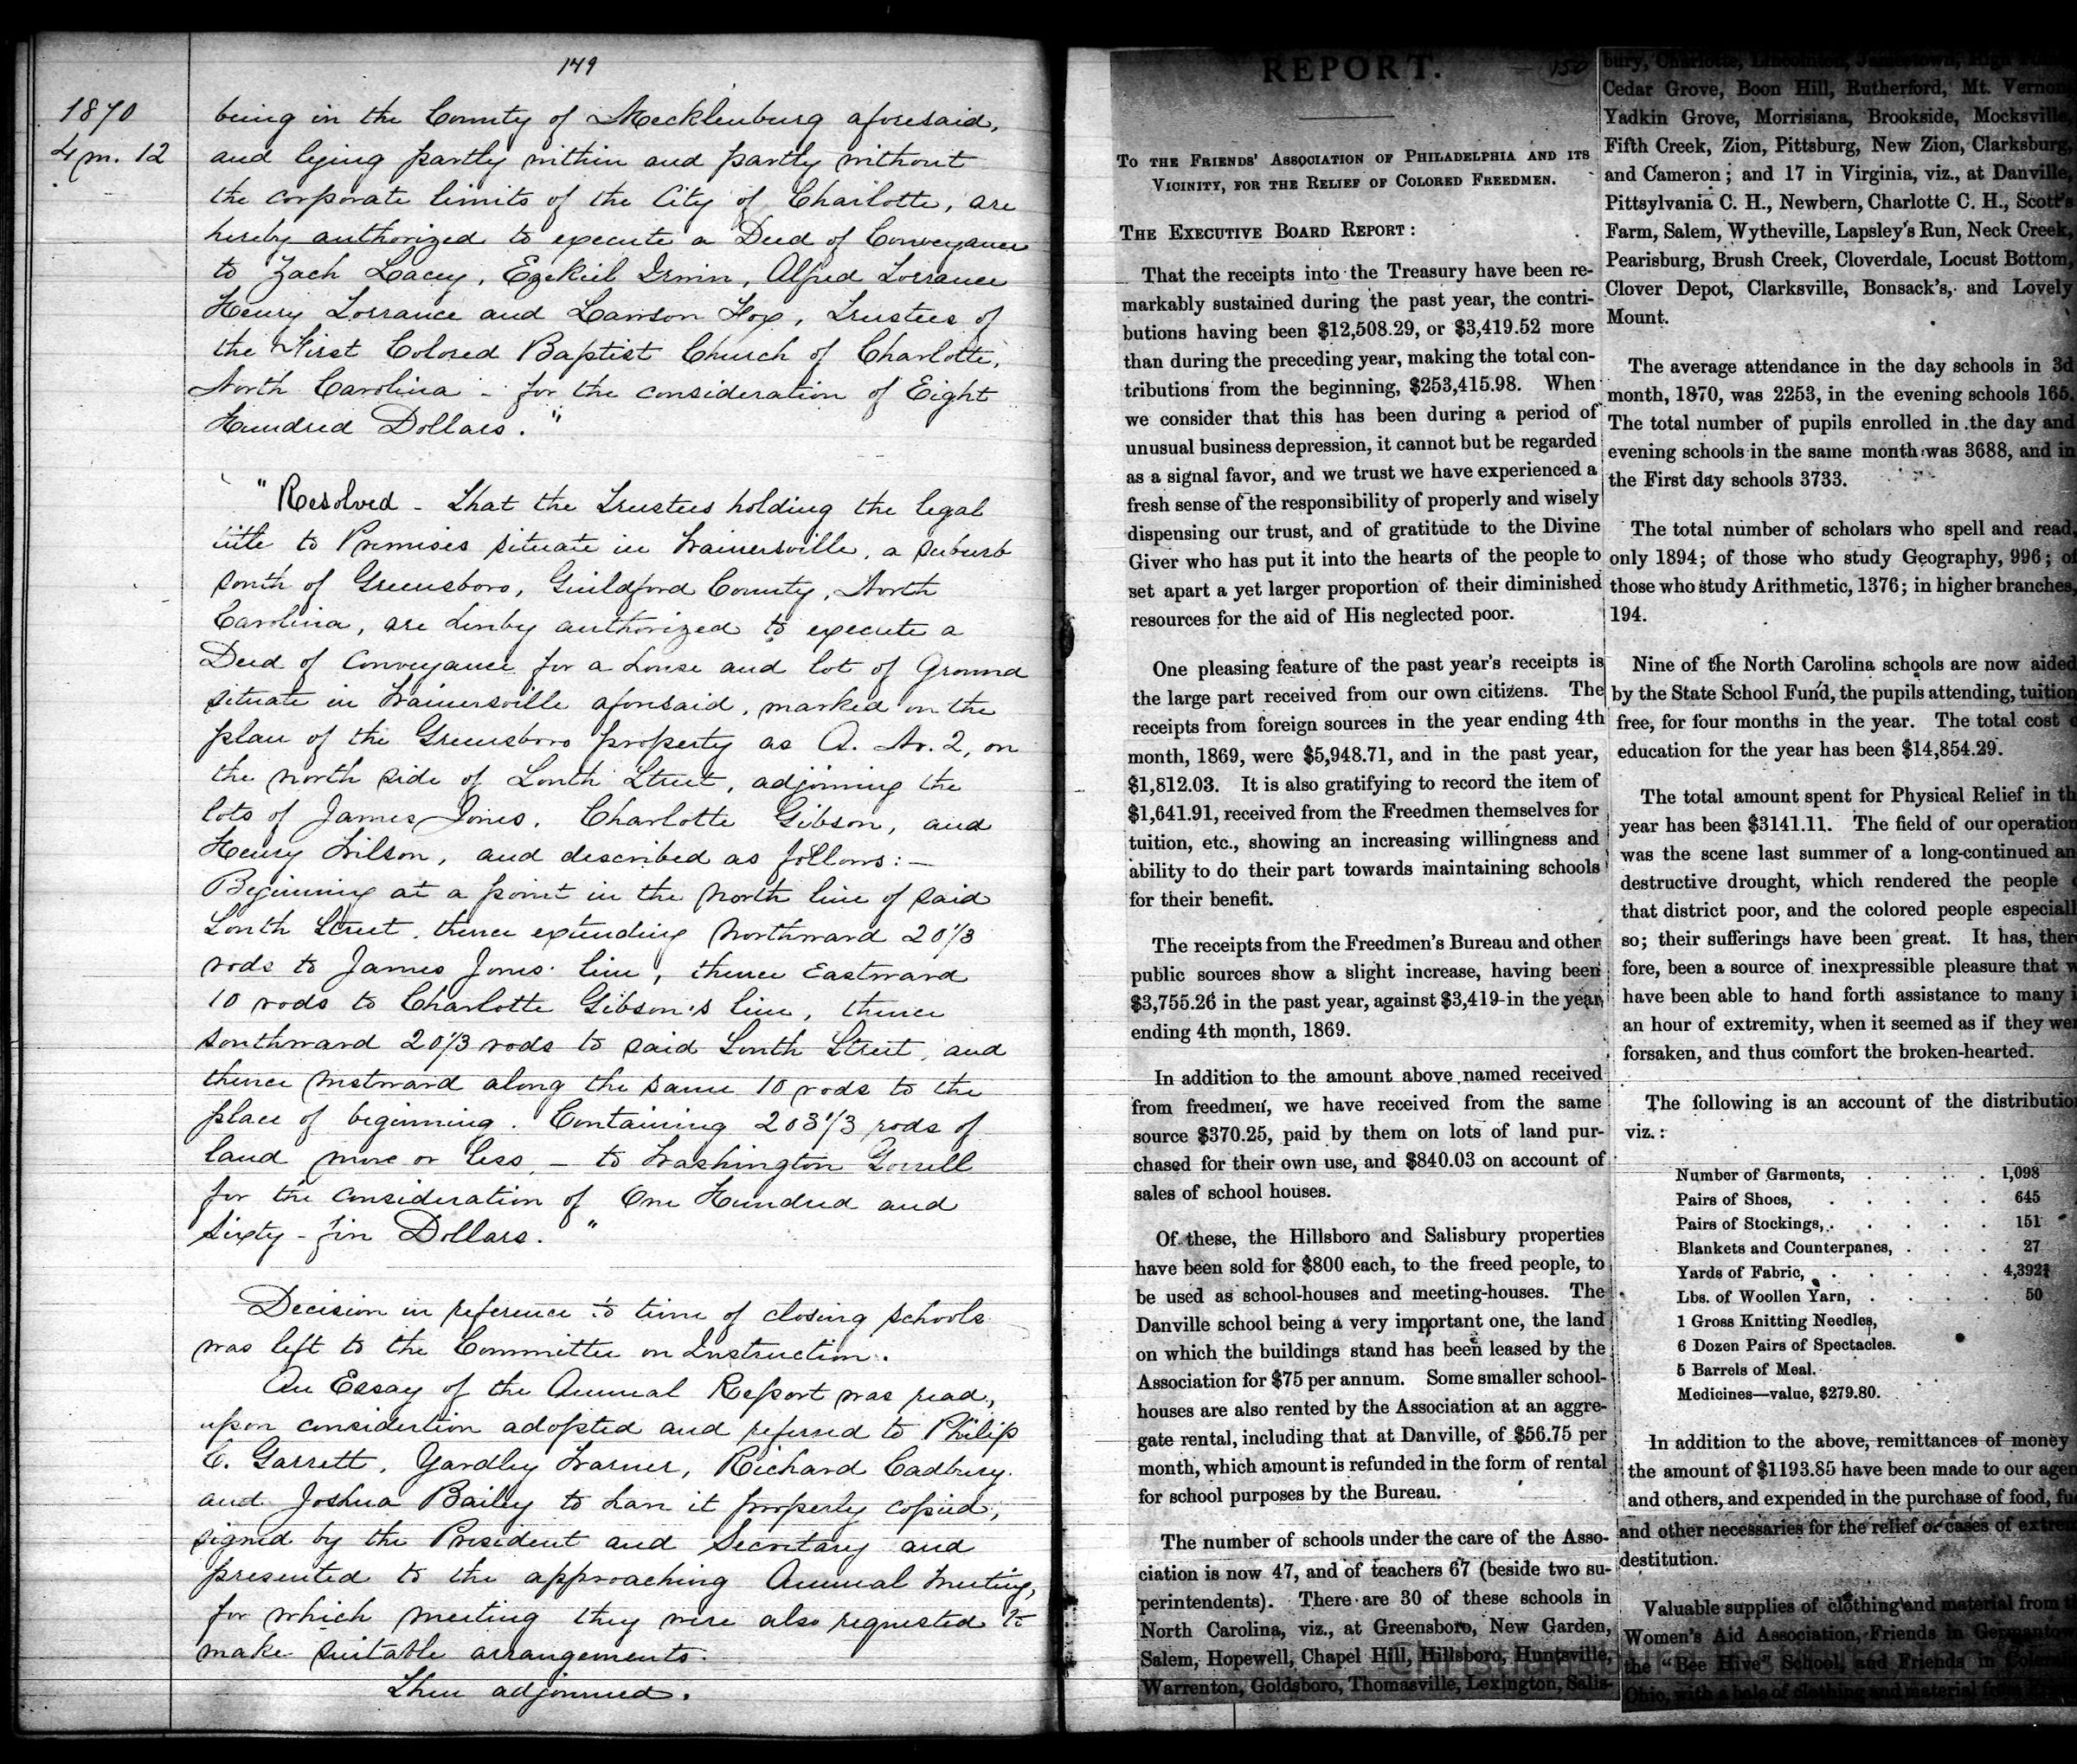 149
1870
4 m. 12
being in the County of Mecklenburg aforesaid,
and lying partly within and partly without
the corporate limits of the City of Charlotte, are
hereby authorized to execute a Deed of Conveyance
to Zach Lacey, Ezekiel Irwin, Alfred Lorrance
Henry Lorrance and Lawson Fox, Trustees of
the First Colored Baptist Church of Charlotte,
North Carolina - for the consideration of Eight
Hundred Dollars."
"Resolved - That the Trustees holding the legal
title to Premises situate in Warnersville, a suburb
south of Greensboro, Guildford County, North
Carolina, are hereby authorized to execute a
Deed of Conveyance for a house and lot of Ground
situate in Warnersville aforesaid, marked on the
plan of the Greensboro property as A. No. 2, on
the north side of South Street, adjoining the
lots of James Jones, Charlotte Gibson, and
Henry Wilson, and described as follows: -
Beginning at a point in the north line of said
South Street, thence extending Northward 20 1/3
rods to James Jones' line, thence Eastward
10 rods to Charlotte Gibson's line, thence
southward 20 1/3 rods to said South Street, and
thence westward along the same 10 rods to the
place of beginning. Containing 203 1/3 rods of
land more or less, - to Washington Gorrell
for the consideration of One Hundred and
Sixty-five Dollars."
Decision in reference to time of closing schools
was left to the Committee on Instruction.
An Essay of the Annual Report was read,
upon considertion adopted and referred to Philip
C. Garrett, Yardley Warner, Richard Cadbury
and Joshua Bailey to have it properly copied,
signed by the President and Secretary and
presented to the approaching Annual Meeting,
for which meeting they were also requested to
make suitable arrangements.
Then adjourned.
150
REPORT.
TO THE FRIENDS' ASSOCIATION OF PHILADELPHIA AND ITS
VICINITY, FOR THE RELIEF OF COLORED FREEDMEN.
THE EXECUTIVE BOARD REPORT:
That the receipts into the Treasury have been re-
markably sustained during the past year, the contri-
butions having been $12,508.29, or $3,419.52 more
than during the preceding year, making the total con-
tributions from the beginning, $253,415.98. When
we consider that this has been during a period of
unusual business depression, it cannot but be regarded
as a signal favor, and we trust we have experienced a
fresh sense of the responsibility of properly and wisely
dispensing our trust, and of gratitude to the Divine
Giver who has put it into the hearts of the people to
set apart a yet larger proportion of their diminished
resources for the aid of His neglected poor.
One pleasing feature of the past year's receipts is
the large part received from our own citizens. The
receipts from foreign sources in the year ending 4th
month, 1869, were $5,948.71, and in the past year,
$1,812.03. It is also gratifying to record the item of
$1,641.91, received from the Freedmen themselves for
tuition, etc., showing an increasing willingness and
ability to do their part towards maintaining schools
for their benefit.
The receipts from the Freedmen's Bureau and other
public sources show a slight increase, having been
$3,755.26 in the past year, against $3,419 in the year,
ending 4th month, 1869.
In addition to the amount above named received
from freedmen, we have received from the same
source $370.25, paid by them on lots of land pur-
chased for their own use, and $840.03 on account of
sales of school houses.
Of these, the Hillsboro and Salisbury properties
have been sold for $800 each, to the freed people, to
be used as school-houses and meeting-houses. The
Danville school being a very important one, the land
on which the buildings stand has been leased by the
Association for $75 per annum. Some smaller school-
houses are also rented by the Association at an aggre-
gate rental, including that at Danville, of $56.75 per
month, which amount is refunded in the form of rental
for school purposes by the Bureau.
The number of schools under the care of the Asso-
ciation is now 47, and of teachers 67 (beside two su-
perintendents). There are 30 of these schools in
North Carolina, viz., at Greensboro, New Garden,
Salem, Hopewell, Chapel Hill, Hillsboro, Huntsville,
Warrenton, Goldsboro, Thomasville, Lexington, Salis-
bury, Charlotte, Lincolnton, Jamestown, High
Cedar Grove, Boon Hill, Rutherford, Mt. Vernon,
Yadkin Grove, Morrisiana, Brookside, Mocksville,
Fifth Creek, Zion, Pittsburg, New Zion, Clarksburg,
and Cameron; and 17 in Virginia, viz., at Danville,
Pittsylvania C. H., Newbern, Charlotte C. H., Scott's
Farm, Salem, Wytheville, Lapsley's Run, Neck Creek,
Pearisburg, Brush Creek, Cloverdale, Locust Bottom,
Clover Depot, Clarksville, Bonsack's, and Lovely
Mount.
The average attendance in the day schools in 3d
month, 1870, was 2253, in the evening schools 165.
The total number of pupils enrolled in the day and
evening schools in the same month was 3688, and in
the First day schools 3733.
The total number of scholars who spell and read,
only 1894; of those who study Geography, 996; of
those who study Arithmetic, 1376; in higher branches,
194.
Nine of the North Carolina schools are now aided
by the State School Fund, the pupils attending, tuition
free, for four months in the year. The total cost
education for the year has been $14,854.29.
The total amount spent for Physical Relief in th
year has been $3141.11. The field of our operation
was the scene last summer of a long-continued an
destructive drought, which rendered the people
that district poor, and the colored people especiall
so; their sufferings have been great. It has, ther
fore, been a source of inexpressible pleasure that w
have been able to hand forth assistance to many i
an hour of extremity, when it seemed as if they wer
forsaken, and thus comfort the broken-hearted.
The following is an account of the distributio
viz.:
Number of Garments, . . . . 1,098
Pairs of Shoes, . . . . . 645
Pairs of Stockings, . . . . . 151
Blankets and Counterpanes, . . . 27
Yards of Fabric, . . . . . 4,392¾
Lbs. of Woollen Yarn, . . . . 50
1 Gross Knitting Needles,
6 Dozen Pairs of Spectacles.
5 Barrels of Meal.
Medicines—value, $279.80.
In addition to the above, remittances of money
the amount of $1193.85 have been made to our agen
and others, and expended in the purchase of food, fu
and other necessaries for the relief of cases of extrem
destitution.
Valuable supplies of clothing and material from t
Women's Aid Association, Friends in Germantow
the "Bee Hive" School, and Friends in
Ohio, with a bale of clothing and material